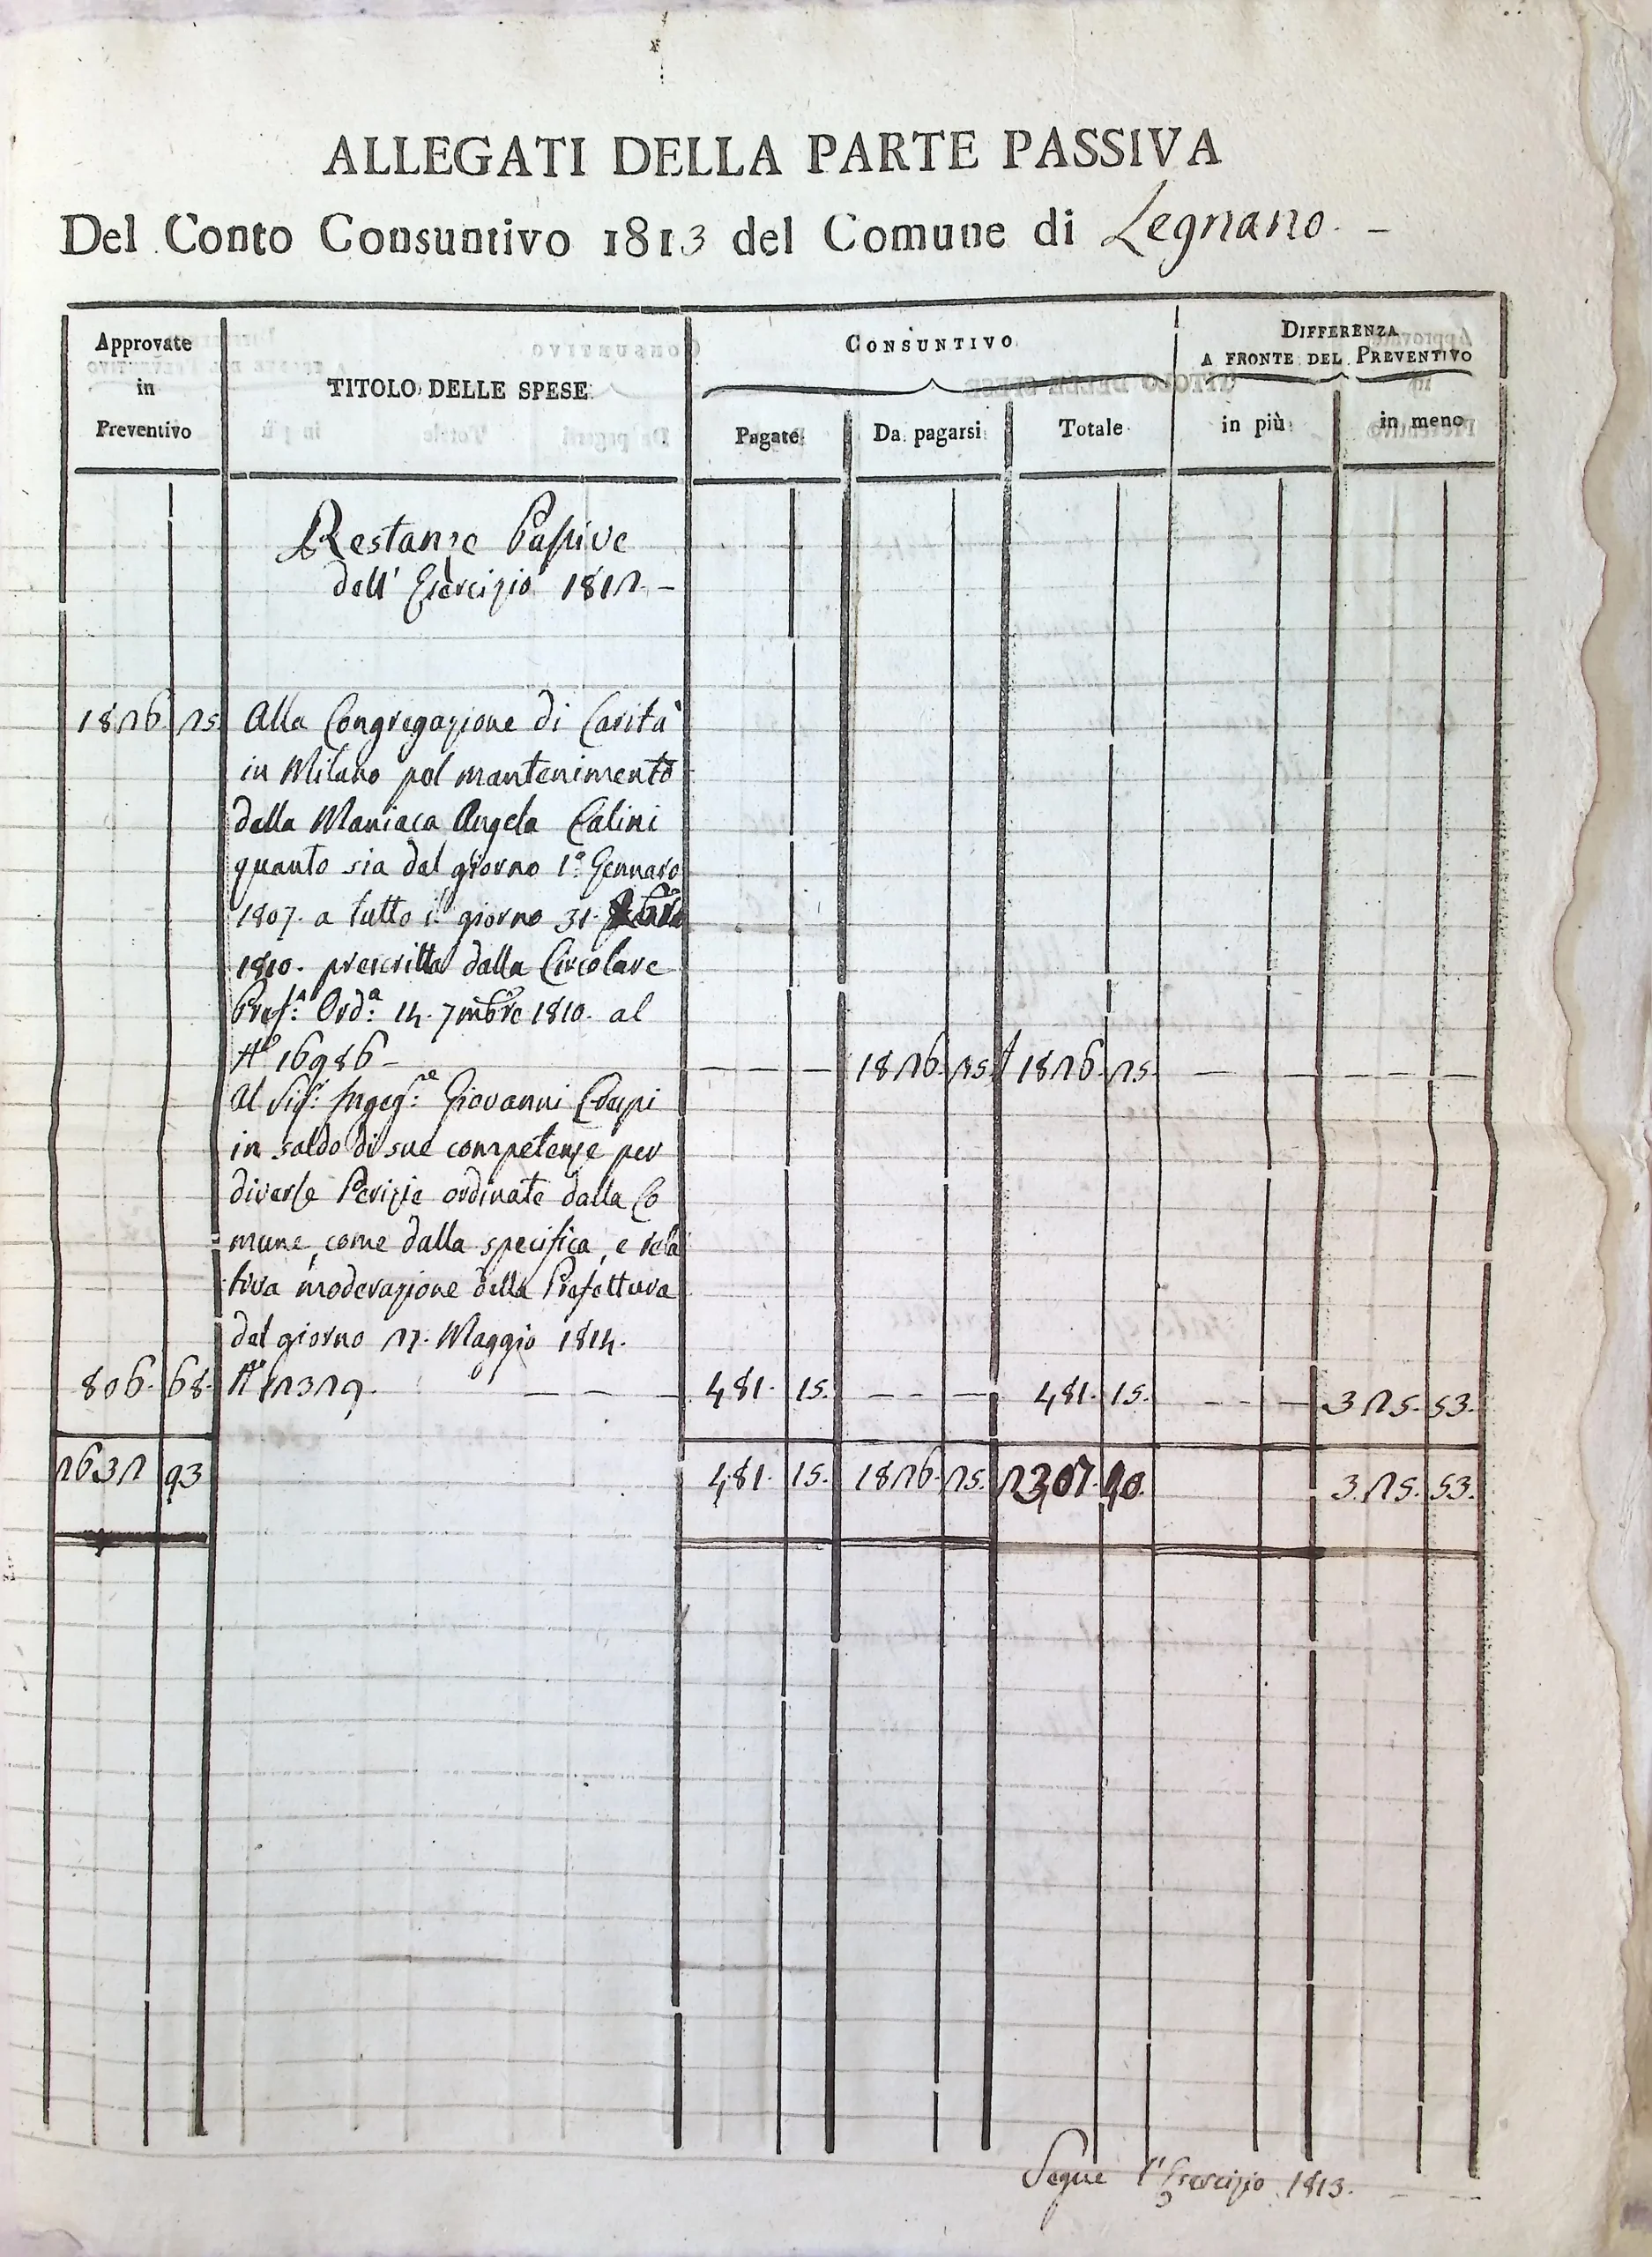 ALLEGATI DELLA PARTE PASSIVA
Del Conto Consuntivo 1813 del Comune di Legnano. -
Approvate in Preventivo
TITOLO DELLE SPESE
CONSUNTIVO
Pagate
Da pagarsi
Totale
DIFFERENZA
A FRONTE DEL PREVENTIVO
in più
in meno
Restanze Passive
dell' Esercizio 1812. -
1826. 25. Alla Congregazione di Carità
in Milano pel mantenimento
della Maniaca Angela Calini
quanto sia dal giorno 1.° Gennaro
1807. a tutto il giorno 31.
1810. prescritta dalla Circolare
Pref.a Ord.a 14. 7mbre 1810. al
N° 16986 - — — — 1826. 25. 1826. 25. — — — — —
Al Sig.r Ingeg.re Giovanni
in saldo di sue competenze per
diverse Perizie ordinate dalla Co
mune, come dalla specifica, e rela
tiva moderazione della Prefettura
del giorno 27. Maggio 1814.
806. 68. N° 12329. — — — 481. 15. — — — 481. 15. — — — 325. 53.
2632 93 481. 15. 1826. 25. 2307. 40. 325. 53.
Segue l'Esercizio 1813. — —